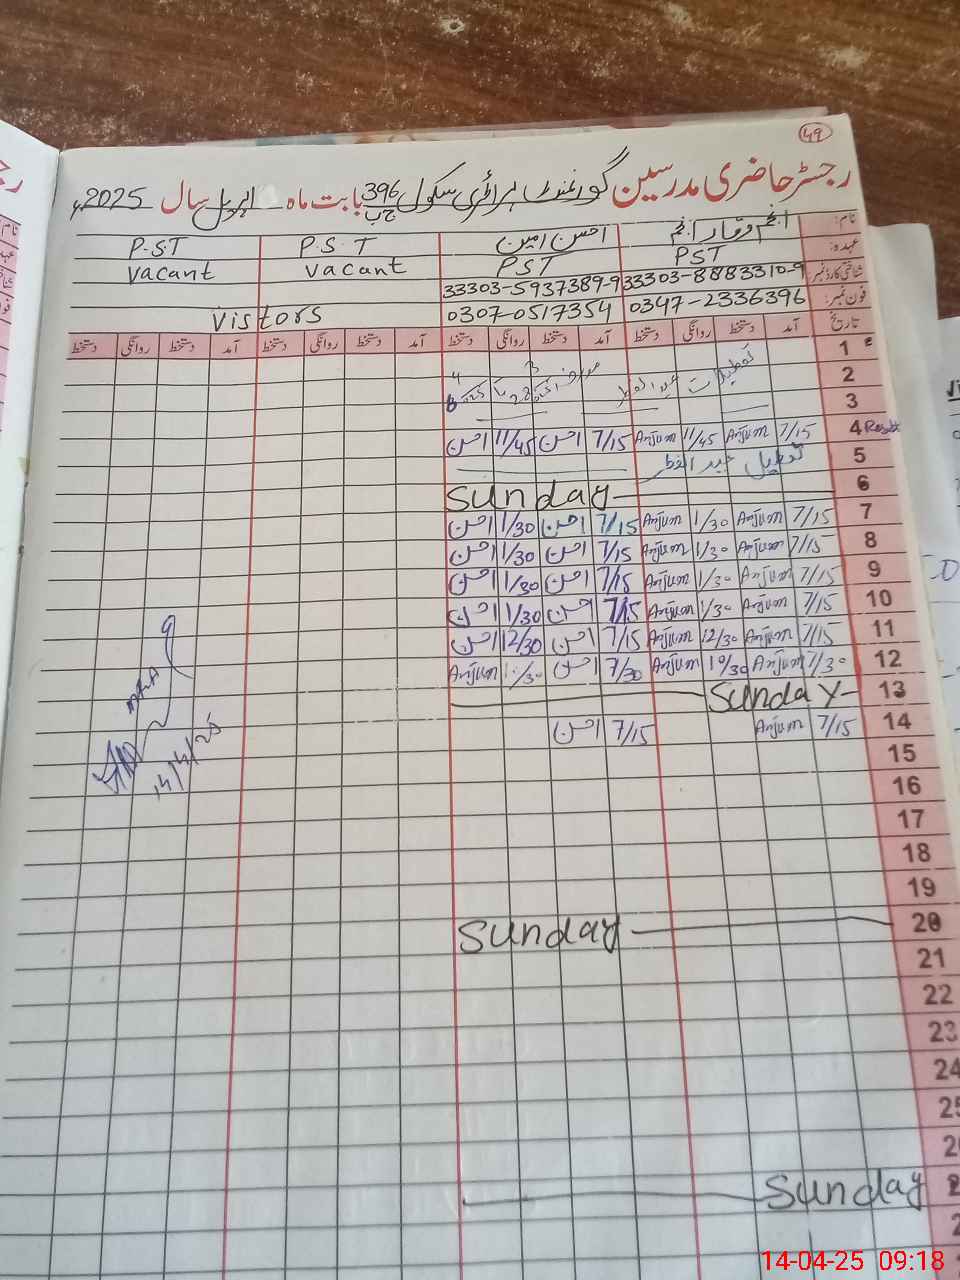 49
رجسٹر حاضری مدرسین گورنمنٹ پرائمری سکول 396 ج ب بابت ماہ اپریل سال 2025ء
نام: انجم وقار انجم احسن امین P.S.T P.S.T
عہدہ: PST PST vacant vacant
شناختی کارڈ نمبر: 33303-8883310-9 33303-5937389-9
فون نمبر: 0347-2336396 0307-0517354 visitors
تاریخ آمد دستخط روانگی دستخط آمد دستخط روانگی دستخط آمد دستخط روانگی دستخط آمد دستخط روانگی دستخط
1
2 تعطیلات عید الفطر
3
4 Result 7/15 Anjum 11/45 Anjum 7/15 احسن 11/45 احسن
5 تعطیل عید الفطر
6 Sunday
7 7/15 Anjum 1/30 Anjum 7/15 احسن 1/30 احسن
8 7/15 Anjum 1/30 Anjum 7/15 احسن 1/30 احسن
9 7/15 Anjum 1/30 Anjum 7/15 احسن 1/30 احسن
10 7/15 Anjum 1/30 Anjum 7/15 احسن 1/30 احسن
11 7/15 Anjum 12/30 Anjum 7/15 احسن 12/30 احسن
12 7/30 Anjum 10/30 Anjum 7/30 احسن 10/30 Anjum
13 Sunday
14 7/15 Anjum 7/15 احسن
14/4/25
15
16
17
18
19
20 Sunday
21
22
23
24
25
Sunday
14-04-25 09:18